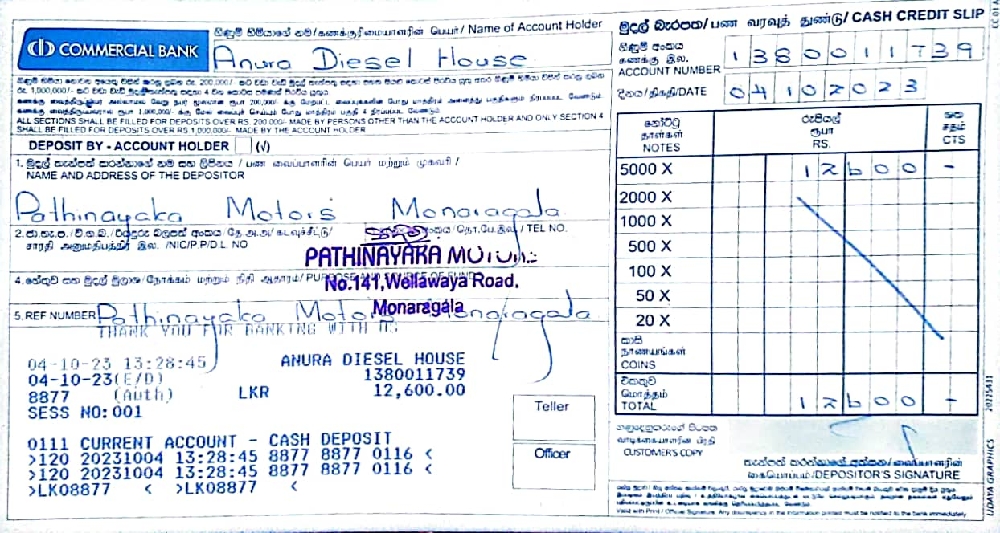 COMMERCIAL BANK
ගිණුම් හිමියාගේ නම/கணக்குரிமையாளரின் பெயர்/ Name of Account Holder
Anura Diesel House
ALL SECTIONS SHALL BE FILLED FOR DEPOSITS OVER RS. 200,000/- MADE BY PERSONS OTHER THAN THE ACCOUNT HOLDER AND ONLY SECTION 4
SHALL BE FILLED FOR DEPOSITS OVER RS 1,000,000/- MADE BY THE ACCOUNT HOLDER
DEPOSIT BY - ACCOUNT HOLDER (√)
1. මුදල් තැන්පත් කරන්නාගේ නම සහ ලිපිනය / பண வைப்பாளரின் பெயர் மற்றும் முகவரி /
NAME AND ADDRESS OF THE DEPOSITOR
Pathinayaka Motors Monaragala
/ TEL NO.
சாரதி அனுமதிப்பத்திர இல. /N/C/P.P/D.L NO
PATHINAYAKA MOTORS
No.141,Wellawaya Road,
Monaragala
5. REF NUMBER Pathinayaka Motors Monaragala
THANK YOU FOR BANKING WITH US
04-10-23 13:28:45 ANURA DIESEL HOUSE
04-10-23(E/D) 1380011739
8877 (Auth) LKR 12,600.00
SESS NO:001
0111 CURRENT ACCOUNT - CASH DEPOSIT
>120 20231004 13:28:45 8877 8877 0116 <
>120 20231004 13:28:45 8877 8877 0116 <
>LK08877 < >LK08877 <
Teller
Officer
මුදල් බැරපත/பண வரவுத் துண்டு/ CASH CREDIT SLIP
ගිණුම් අංකය
கணக்கு இல.
ACCOUNT NUMBER 1380011739
දිනය/திகதி/DATE 04102023
නෝට්ටු රුපියල් ශත
நாள்கள் ரூபா சதம்
NOTES RS. CTS
5000 X 12600 -
2000 X
1000 X
500 X
100 X
50 X
20 X
කාසි
நாணயங்கள்
COINS
එකතුව
மொத்தம்
TOTAL 12600 -
ගනුදෙනුකරුගේ පිටපත
வாடிக்கையாளரின் பிரதி
CUSTOMER'S COPY
තැන්පත් කරන්නාගේ අත්සන/வைப்பாளரின்
கையொப்பம்/DEPOSITOR'S SIGNATURE
Valid with Print / Official Signature. Any discrepancy in the information printed must be notified to the bank immediately
UDAYA GRAPHICS 20225431